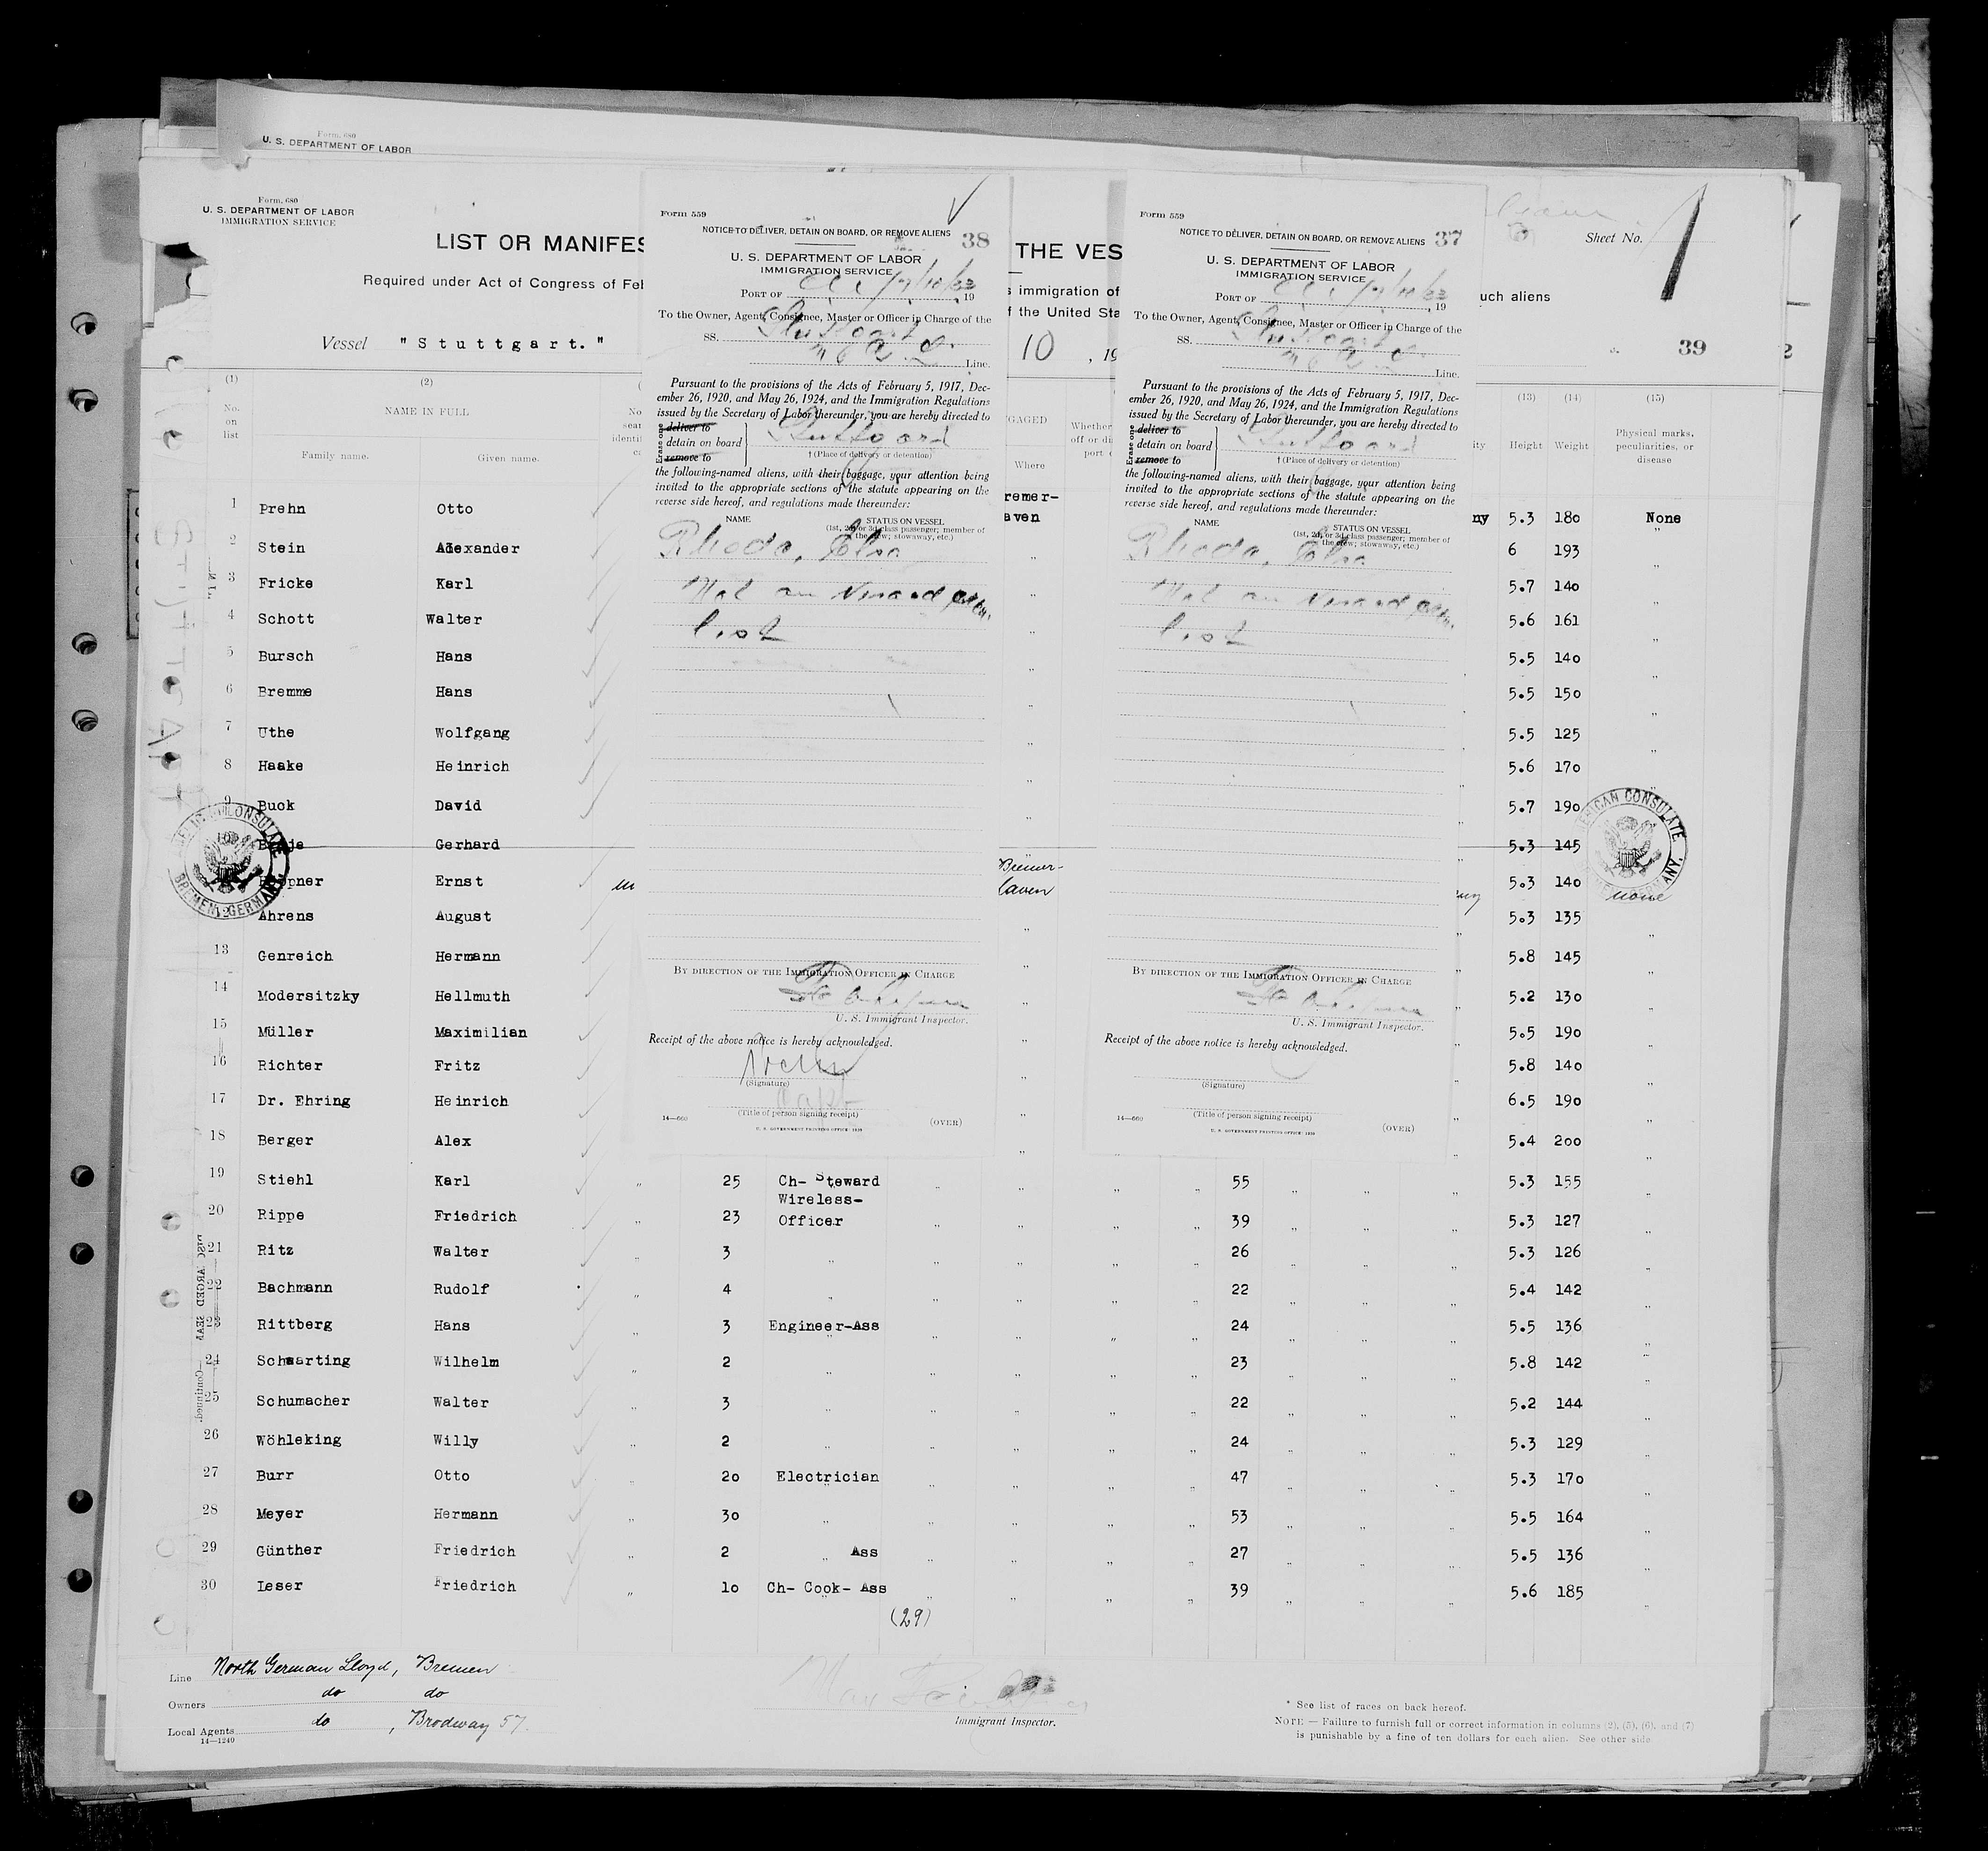 Form 680
U. S. DEPARTMENT OF LABOR
Form 680
U. S. DEPARTMENT OF LABOR
IMMIGRATION SERVICE
LIST OR MANIFES
THE VES
Sheet No.
Required under Act of Congress of Feb
s immigration of
uch aliens
f the United Sta
Vessel "Stuttgart."
10 , 19
39
2
Form 559
38
NOTICE TO DELIVER, DETAIN ON BOARD, OR REMOVE ALIENS
U. S. DEPARTMENT OF LABOR
IMMIGRATION SERVICE
PORT OF , 19
To the Owner, Agent, Consignee, Master or Officer in Charge of the
SS. Stuttgart
Line.
Pursuant to the provisions of the Acts of February 5, 1917, Dec-
ember 26, 1920, and May 26, 1924, and the Immigration Regulations
issued by the Secretary of Labor thereunder, you are hereby directed to
Erase one
deliver to
detain on board
remove to
† (Place of delivery or detention)
the following-named aliens, with their baggage, your attention being
invited to the appropriate sections of the statute appearing on the
reverse side hereof, and regulations made thereunder:
NAME STATUS ON VESSEL
(1st, 2d, or 3d class passenger; member of
the crew; stowaway, etc.)
Rhoda, Elsa
Not on
list
BY DIRECTION OF THE IMMIGRATION OFFICER IN CHARGE
U. S. Immigrant Inspector.
Receipt of the above notice is hereby acknowledged.
(Signature)
Capt
(Title of person signing receipt)
14—660
U. S. GOVERNMENT PRINTING OFFICE: 1929
(OVER)
Form 559
37
NOTICE TO DELIVER, DETAIN ON BOARD, OR REMOVE ALIENS
U. S. DEPARTMENT OF LABOR
IMMIGRATION SERVICE
PORT OF , 19
To the Owner, Agent, Consignee, Master or Officer in Charge of the
SS. Stuttgart
Line.
Pursuant to the provisions of the Acts of February 5, 1917, Dec-
ember 26, 1920, and May 26, 1924, and the Immigration Regulations
issued by the Secretary of Labor thereunder, you are hereby directed to
Erase one
deliver to
detain on board
remove to
† (Place of delivery or detention)
the following-named aliens, with their baggage, your attention being
invited to the appropriate sections of the statute appearing on the
reverse side hereof, and regulations made thereunder:
NAME STATUS ON VESSEL
(1st, 2d, or 3d class passenger; member of
the crew; stowaway, etc.)
Rhoda, Elsa
Not on
list
BY DIRECTION OF THE IMMIGRATION OFFICER IN CHARGE
U. S. Immigrant Inspector.
Receipt of the above notice is hereby acknowledged.
(Signature)
(Title of person signing receipt)
14—660
U. S. GOVERNMENT PRINTING OFFICE: 1929
(OVER)
(1) (2) (13) (14) (15)
No. on list NAME IN FULL GAGED Whether Height Weight Physical marks, peculiarities, or disease
Family name. Given name. Where
1 Prehn Otto remer-aven ny 5.3 180 None
2 Stein Alexander " 6 193 "
3 Fricke Karl " 5.7 140 "
4 Schott Walter " 5.6 161 "
5 Bursch Hans " 5.5 140 "
6 Bremme Hans " 5.5 150 "
7 Uthe Wolfgang " 5.5 125 "
8 Haake Heinrich " 5.6 170 "
9 Buck David " 5.7 190
Gerhard 5.3 145
pner Ernst Bremer-haven 5.3 140 None
12 Ahrens August " 5.3 135 "
13 Genreich Hermann " 5.8 145 "
14 Modersitzky Hellmuth " 5.2 130 "
15 Müller Maximilian " 5.5 190 "
16 Richter Fritz " 5.8 140 "
17 Dr. Ehring Heinrich " 6.5 190 "
18 Berger Alex " 5.4 200 "
19 Stiehl Karl " 25 Ch- Steward " " " 55 " " " 5.3 155 "
20 Rippe Friedrich " 23 Wireless-Officer " " " 39 " " " 5.3 127 "
21 Ritz Walter " 3 " " " " 26 " " " 5.3 126 "
22 Bachmann Rudolf " 4 " " " " 22 " " " 5.4 142 "
23 Rittberg Hans " 3 Engineer-Ass " " " 24 " " " 5.5 136 "
24 Schaarting Wilhelm " 2 " " " " 23 " " " 5.8 142 "
25 Schumacher Walter " 3 " " " " 22 " " " 5.2 144 "
26 Wöhleking Willy " 2 " " " " 24 " " " 5.3 129 "
27 Burr Otto " 20 Electrician " " " 47 " " " 5.3 170 "
28 Meyer Hermann " 30 " " " " 53 " " " 5.5 164 "
29 Günther Friedrich " 2 " Ass " " " 27 " " " 5.5 136 "
30 Leser Friedrich " 10 Ch- Cook- Ass " " " 39 " " " 5.6 185 "
(29)
AMERICAN CONSULATE
BREMEN, GERMANY.
AMERICAN CONSULATE
BREMEN, GERMANY.
Line North German Lloyd, Bremen
Owners do do
Local Agents do , Brodway 57.
14—1240
Immigrant Inspector.
* See list of races on back hereof.
NOTE — Failure to furnish full or correct information in columns (2), (5), (6), and (7)
is punishable by a fine of ten dollars for each alien. See other side